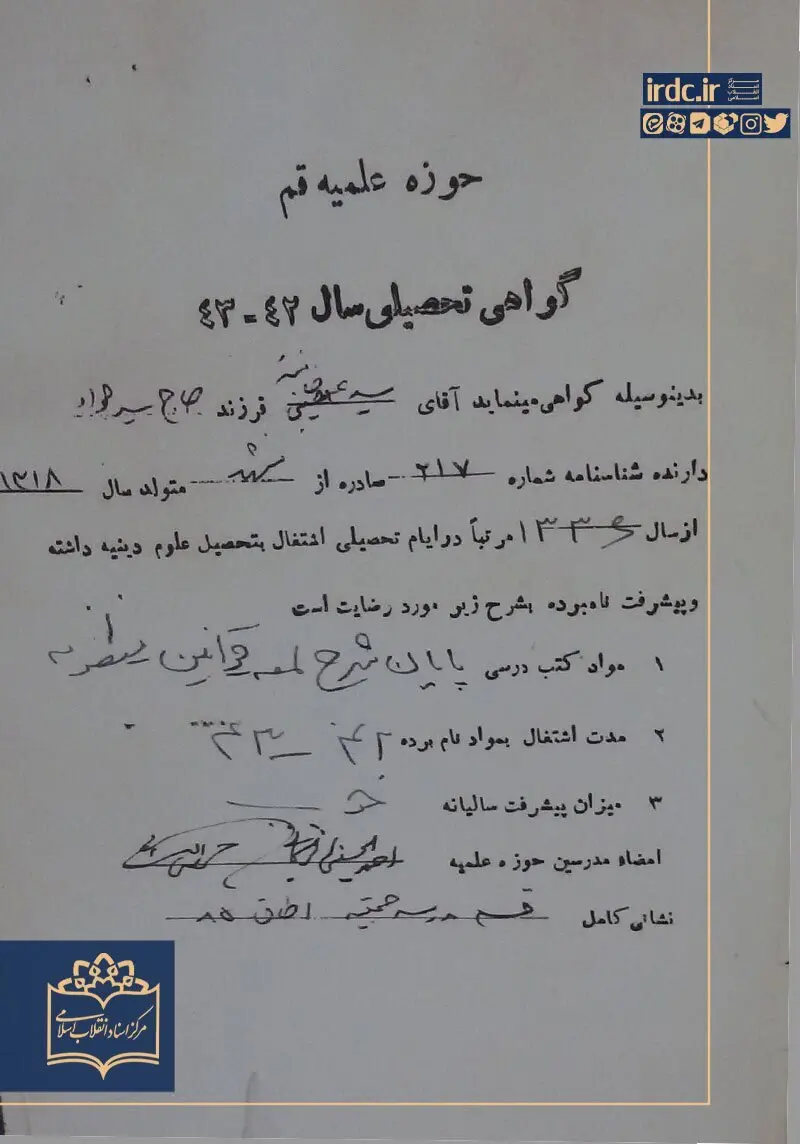 irdc.ir
مرکز اسناد انقلاب اسلامی
حوزه علمیه قم
گواهی تحصیلی سال ۴۲ - ۴۳
بدینوسیله گواهی مینماید آقای سید حسینی خامنه فرزند حاج سید جواد
دارنده شناسنامه شماره ۲۱۷ صادره از مشهد متولد سال ۱۳۱۸
از سال ۱۳۳۶ مرتباً در ایام تحصیلی اشتغال بتحصیل علوم دینیه داشته
و پیشرفت نامبرده بشرح زیر مورد رضایت است
۱ مواد کتب درسی پایان شرح لمعه قوانین منظومه
۲ مدت اشتغال بمواد نام برده
۳ میزان پیشرفت سالیانه خوب
امضاء مدرسین حوزه علمیه
نشانی کامل قم مدرسه حجتیه اطاق ۸۵
مرکز اسناد انقلاب اسلامی